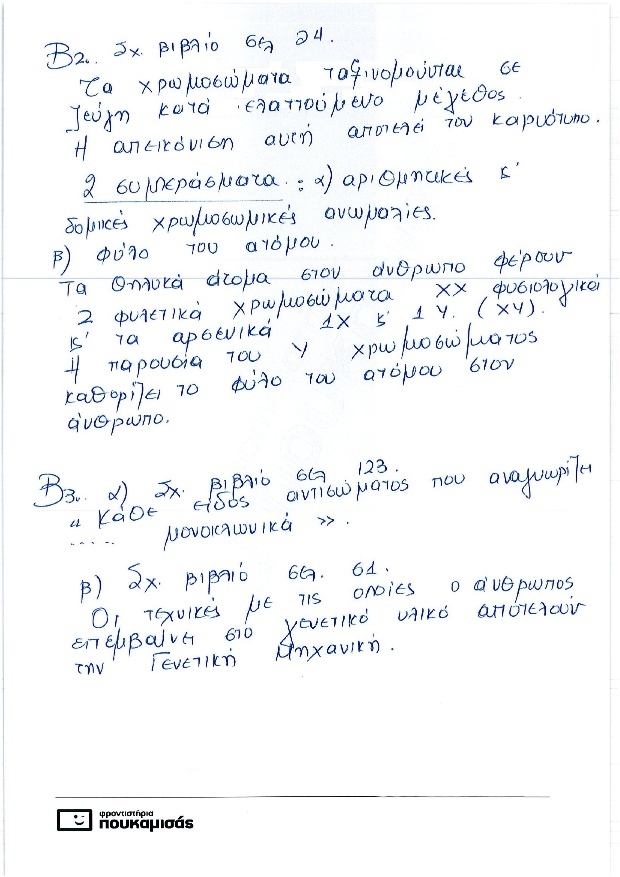 Β2. Σχ. βιβλίο σελ 24.
Τα χρωμοσώματα ταξινομούνται σε
ζεύγη κατά ελαττούμενο μέγεθος.
Η απεικόνιση αυτή αποτελεί τον καρυότυπο.
2 συμπεράσματα : α) αριθμητικές κ'
δομικές χρωμοσωμικές ανωμαλίες.
β) φύλο του ατόμου.
Τα θηλυκά άτομα στον άνθρωπο φέρουν
2 φυλετικά χρωμοσώματα ΧΧ φυσιολογικά
κ' τα αρσενικά 1Χ κ' 1Υ. (ΧΥ).
Η παρουσία του Υ χρωμοσώματος
καθορίζει το φύλο του ατόμου στον
άνθρωπο.
Β3. α) Σχ. βιβλίο σελ 123.
" Κάθε είδος αντισώματος που αναγνωρίζει
..... μονοκλωνικά ».
β) Σχ. βιβλίο σελ. 61.
Οι τεχνικές με τις οποίες ο άνθρωπος
επεμβαίνει στο γενετικό υλικό αποτελούν
την Γενετική Μηχανική.
φροντιστήρια
πουκαμισάς